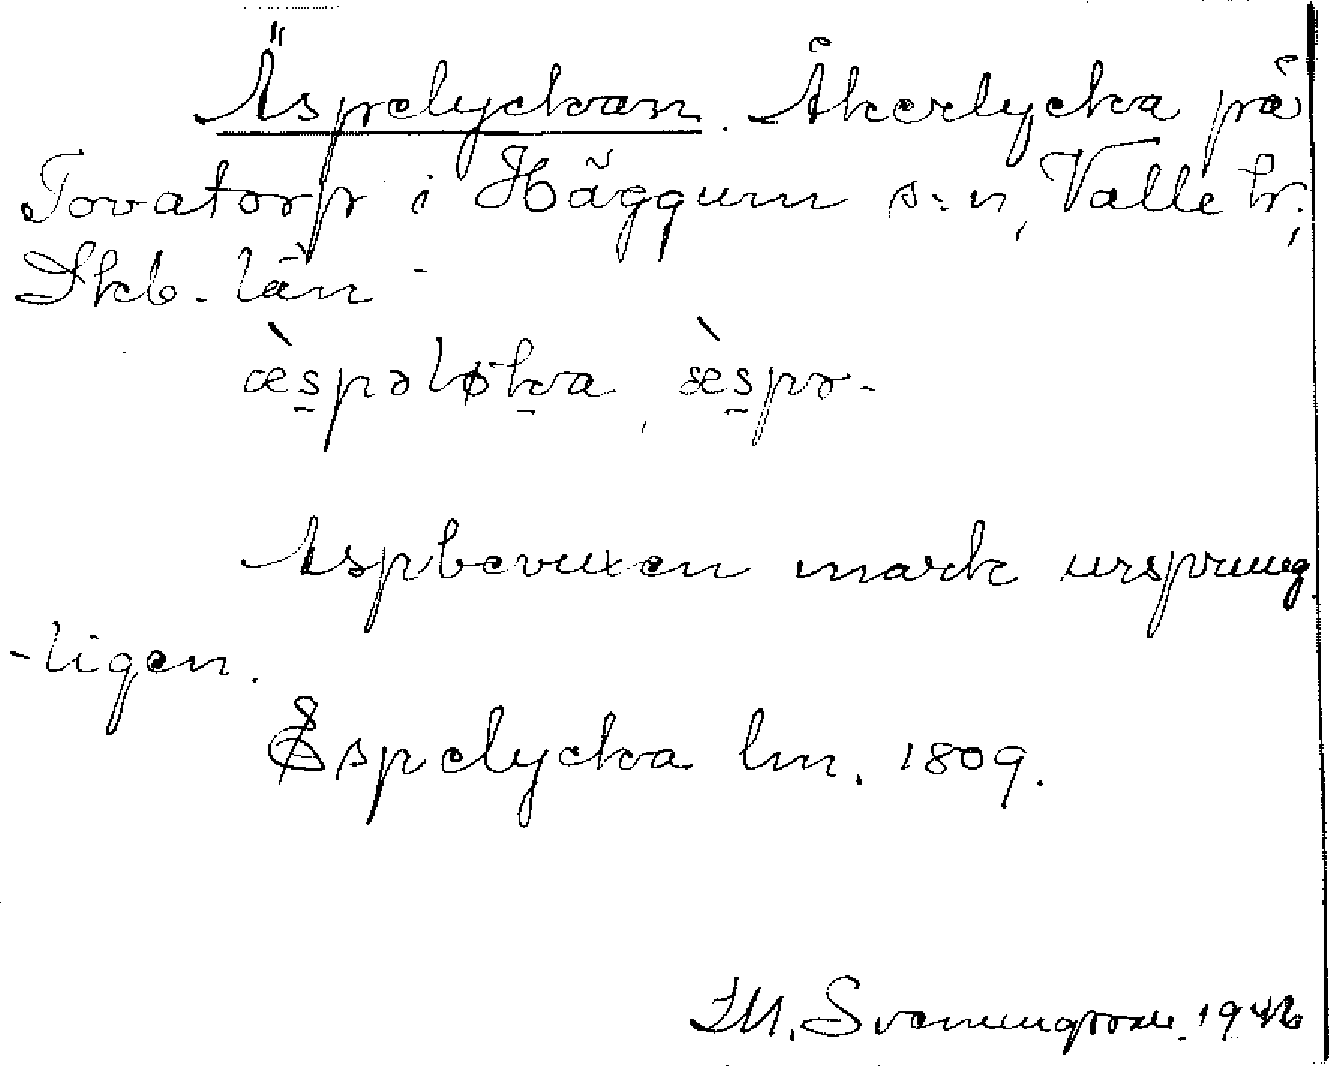 Äspelyckan. Åkerlycka på
Tovatorp i Häggum s:n, Valle hr,
Skb. län
æ̀spəløka, æ̀spə-
Aspbevuxen mark ursprung
-ligen.
Espelycka lm. 1809.
Svenungsson. 1942